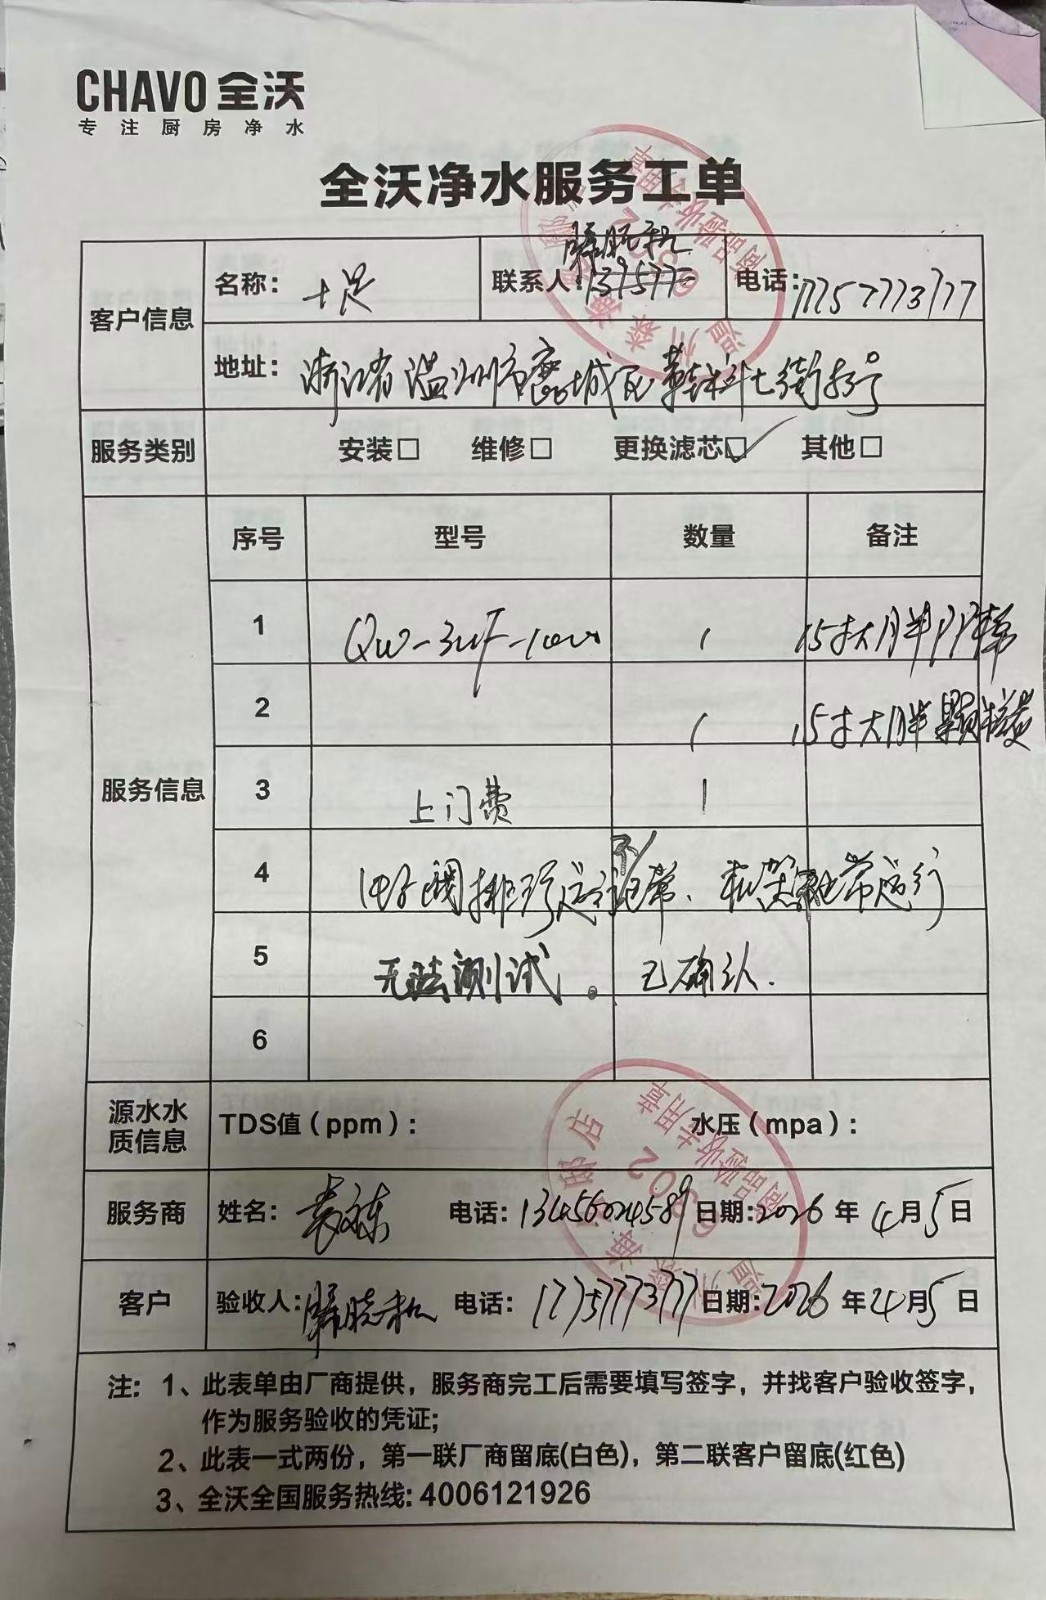 CHAVO 全沃
专注厨房净水
全沃净水服务工单
客户信息 名称：十足 联系人： 电话：17757773777
地址：浙江省温州市鹿城区鞋料七街
服务类别 安装□ 维修□ 更换滤芯☑ 其他□
服务信息 序号 型号 数量 备注
1 QW-3UF-1000 1 15寸大胖PP棉
2 1 15寸大胖颗粒炭
3 上门费 1
4 电子阀排 不正常、机器正常运行
5 无法测试。已确认.
6
源水水质信息 TDS值（ppm）： 水压（mpa）：
服务商 姓名：袁文栋 电话：13456024589 日期：2026 年 4 月 5 日
客户 验收人： 电话：17757773777 日期：2026 年 4 月 5 日
注：1、此表单由厂商提供，服务商完工后需要填写签字，并找客户验收签字，
作为服务验收的凭证；
2、此表一式两份，第一联厂商留底(白色)，第二联客户留底(红色)
3、全沃全国服务热线：4006121926
商品验收专用章
6302